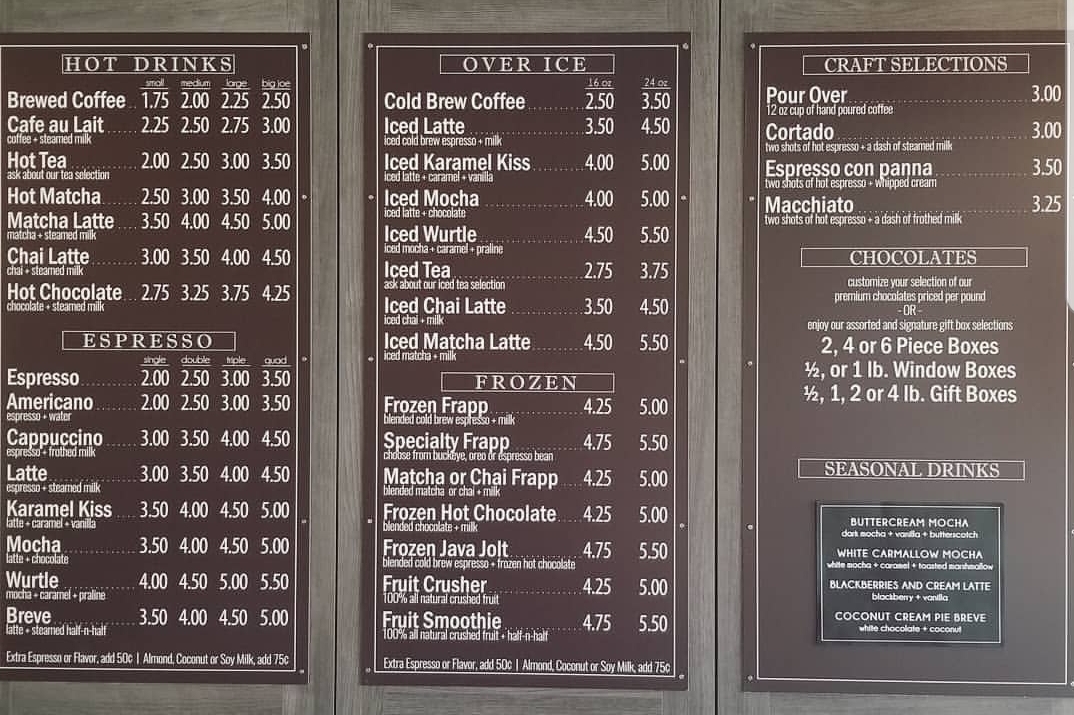 HOT DRINKS
small medium large big joe
Brewed Coffee 1.75 2.00 2.25 2.50
Cafe au Lait 2.25 2.50 2.75 3.00
coffee + steamed milk
Hot Tea 2.00 2.50 3.00 3.50
ask about our tea selection
Hot Matcha 2.50 3.00 3.50 4.00
Matcha Latte 3.50 4.00 4.50 5.00
matcha + steamed milk
Chai Latte 3.00 3.50 4.00 4.50
chai + steamed milk
Hot Chocolate 2.75 3.25 3.75 4.25
chocolate + steamed milk
ESPRESSO
single double triple quad
Espresso 2.00 2.50 3.00 3.50
Americano 2.00 2.50 3.00 3.50
espresso + water
Cappuccino 3.00 3.50 4.00 4.50
espresso + frothed milk
Latte 3.00 3.50 4.00 4.50
espresso + steamed milk
Karamel Kiss 3.50 4.00 4.50 5.00
latte + caramel + vanilla
Mocha 3.50 4.00 4.50 5.00
latte + chocolate
Wurtle 4.00 4.50 5.00 5.50
mocha + caramel + praline
Breve 3.50 4.00 4.50 5.00
latte + steamed half-n-half
Extra Espresso or Flavor, add 50¢ | Almond, Coconut or Soy Milk, add 75¢
OVER ICE
16 oz 24 oz
Cold Brew Coffee 2.50 3.50
Iced Latte 3.50 4.50
iced cold brew espresso + milk
Iced Karamel Kiss 4.00 5.00
iced latte + caramel + vanilla
Iced Mocha 4.00 5.00
iced latte + chocolate
Iced Wurtle 4.50 5.50
iced mocha + caramel + praline
Iced Tea 2.75 3.75
ask about our iced tea selection
Iced Chai Latte 3.50 4.50
iced chai + milk
Iced Matcha Latte 4.50 5.50
iced matcha + milk
FROZEN
Frozen Frapp 4.25 5.00
blended cold brew espresso + milk
Specialty Frapp 4.75 5.50
choose from buckeye, oreo or espresso bean
Matcha or Chai Frapp 4.25 5.00
blended matcha or chai + milk
Frozen Hot Chocolate 4.25 5.00
blended chocolate + milk
Frozen Java Jolt 4.75 5.50
blended cold brew espresso + frozen hot chocolate
Fruit Crusher 4.25 5.00
100% all natural crushed fruit
Fruit Smoothie 4.75 5.50
100% all natural crushed fruit + half-n-half
Extra Espresso or Flavor, add 50¢ | Almond, Coconut or Soy Milk, add 75¢
CRAFT SELECTIONS
Pour Over 3.00
12 oz cup of hand poured coffee
Cortado 3.00
two shots of hot espresso + a dash of steamed milk
Espresso con panna 3.50
two shots of hot espresso + whipped cream
Macchiato 3.25
two shots of hot espresso + a dash of frothed milk
CHOCOLATES
customize your selection of our
premium chocolates priced per pound
- OR -
enjoy our assorted and signature gift box selections
2, 4 or 6 Piece Boxes
½, or 1 lb. Window Boxes
½, 1, 2 or 4 lb. Gift Boxes
SEASONAL DRINKS
BUTTERCREAM MOCHA
dark mocha + vanilla + butterscotch
WHITE CARMALLOW MOCHA
white mocha + caramel + toasted marshmallow
BLACKBERRIES AND CREAM LATTE
blackberry + vanilla
COCONUT CREAM PIE BREVE
white chocolate + coconut